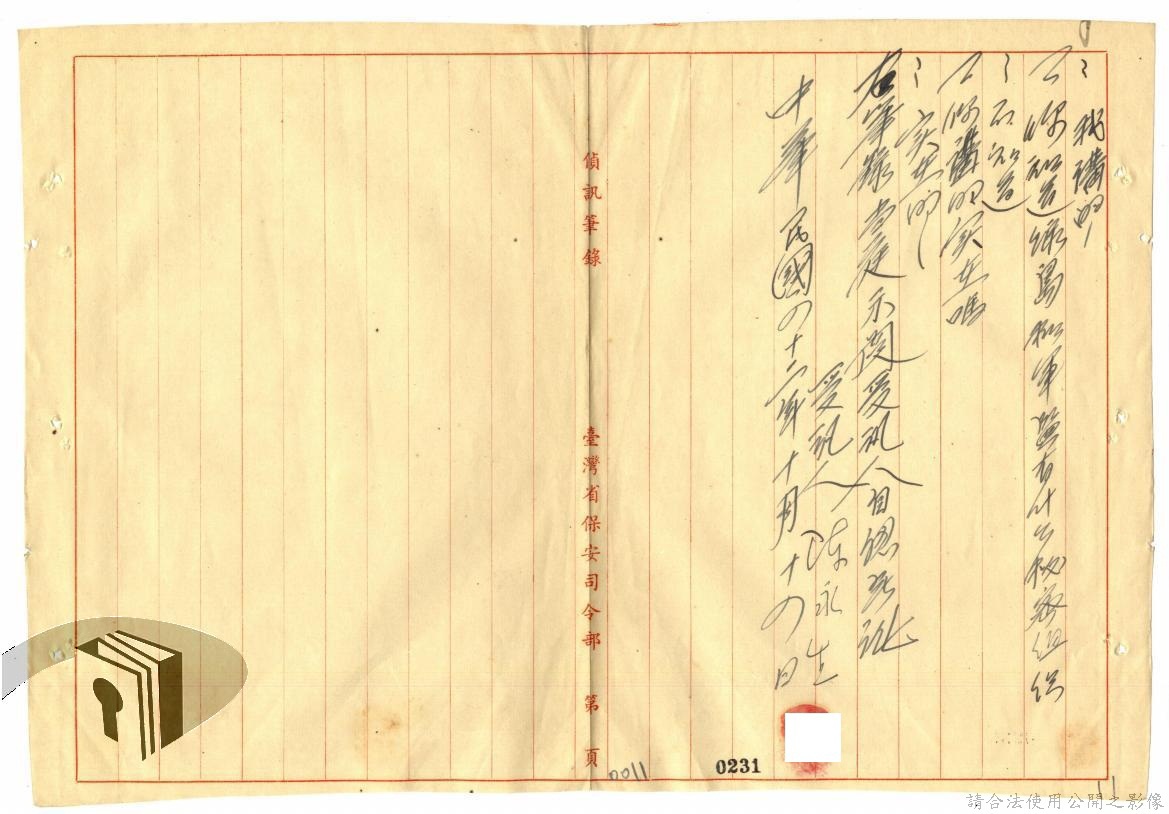 ：我講明
問你知道綠島和軍監有什么秘密組织
：不知道
問你講的实在嗎
：实在的
右筆錄当庭示閱受訊人自認無訛
受訊人 陈永生
中華民國四十二年十月十四日
偵訊筆錄 臺灣省保安司令部 第 頁
0231
0011
11
請合法使用公開之影像